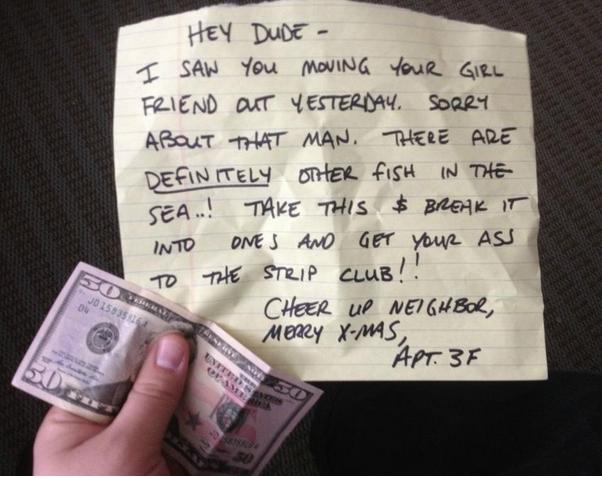 HEY DUDE -
I SAW YOU MOVING YOUR GIRL
FRIEND OUT YESTERDAY. SORRY
ABOUT THAT MAN. THERE ARE
DEFINITELY OTHER FISH IN THE
SEA..! TAKE THIS $ BREAK IT
INTO ONES AND GET YOUR ASS
TO THE STRIP CLUB!!
CHEER UP NEIGHBOR,
MERRY X-MAS,
APT. 3F
50
FEDERAL RESERVE NOTE
UNITED STATES
OF AMERICA
50
50
50